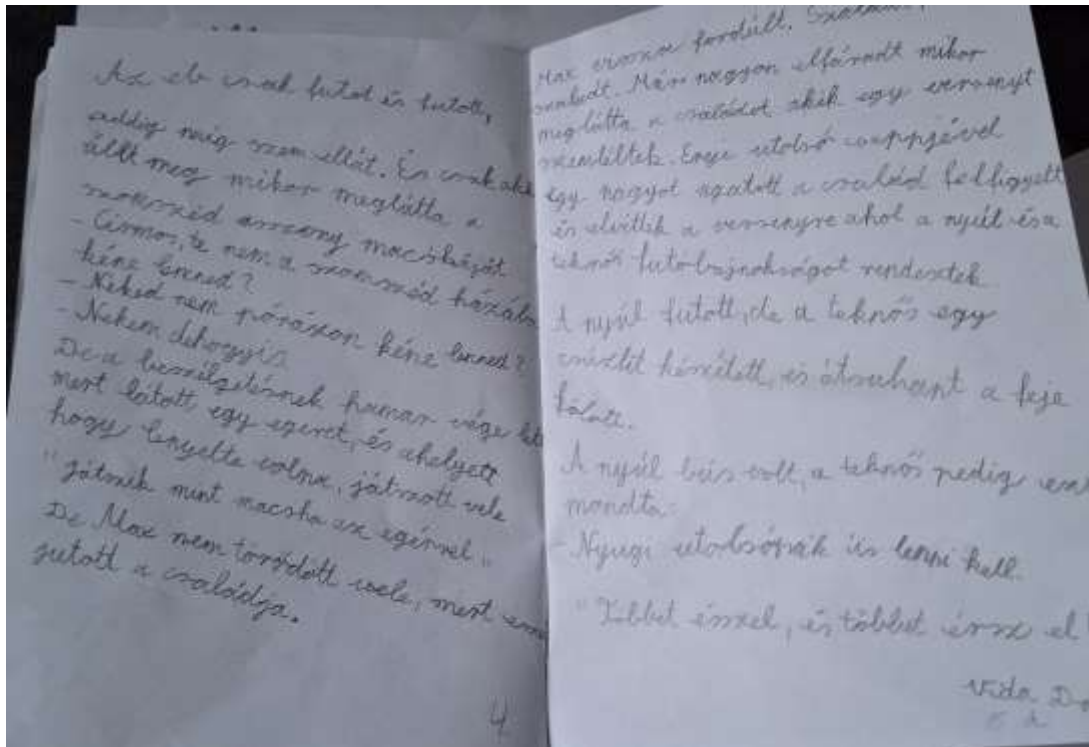 Az eb csak futot és futott,
addig míg szem ellát. És csak
állt meg mikor meglátta a
szomszéd asszony macskáját
- Cirmos, te nem a szomszéd házába
kéne lenned?
- Neked nem pórázon kéne lenned?
- Nekem dehogyis
De a beszélgetésnek hamar vége
mert látott egy egeret, és ahelyett
hogy lenyelte volna, játszott vele
"játszik mint macska az egérrel"
De Max nem törődött vele, mert
jutott a családja.
4
Max vissza fordúlt.
szaladt. Már nagyon elfáradt mikor
meglátta a családot akik egy versenyt
szemléltek. Ereje utolsó cseppjével
egy nagyot ugatott a család felfigyelt
és elvitték a versenyre ahol a nyúl és a
teknős futóbajnokságot rendeztek
A nyúl futott, de a teknős egy
csúzlit készített, és átsuhant a feje
fölött.
A nyúl bús volt, a teknős pedig
mondta:
- Nyugi utolsónak is lenni kell.
"Többet ésszel, és többet érsz el
Vida